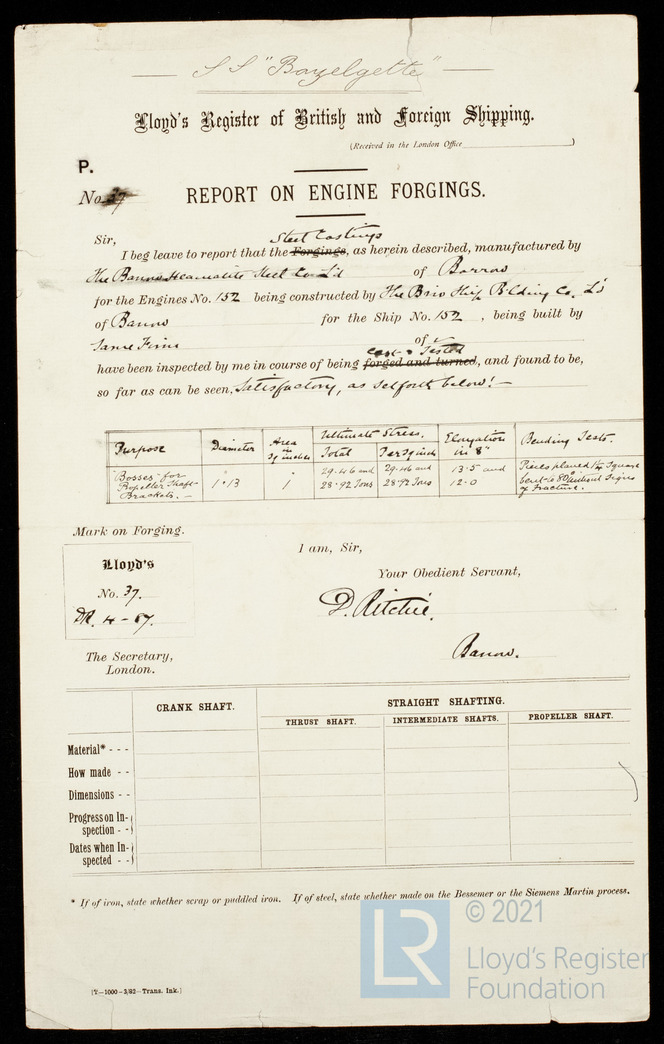 S S "Bazelgette"
Lloyd's Register of British and Foreign Shipping.
(Received in the London Office )
P.
No. 37 REPORT ON ENGINE FORGINGS.
Steel Castings
Sir,
I beg leave to report that the Forgings, as herein described, manufactured by
The Barrow Heamatite Steel Co. L'd of Barrow
for the Engines No. 152 being constructed by The Brow Ship B'lding Co. L'd
of Barrow for the Ship No. 152 , being built by
Same Firm of
Cast & Tested
have been inspected by me in course of being forged and turned, and found to be,
so far as can be seen, Satisfactory, as setforth below! —
Purpose Diameter Area in Sq inches Ultimate Stress. Total Per Sq inch Elongation in 8" Bending Tests.
"Bosses" for Propeller Shaft Brackets. — 1".13 1 29.46 and 28.92 Tons 29.46 and 28.92 Tons 13.5 and 12.0 Pieces planed 1¼ Square bent to 80° without Signs of Fracture.
Mark on Forging.
Lloyd's
No. 37.
DR. 4-87.
I am, Sir,
Your Obedient Servant,
D. Ritchie.
Barrow.
The Secretary,
London.
CRANK SHAFT. STRAIGHT SHAFTING.
THRUST SHAFT. INTERMEDIATE SHAFTS. PROPELLER SHAFT.
Material* - - -
How made - -
Dimensions - -
Progress on In-
spection - -
Dates when In-
spected - -
* If of iron, state whether scrap or puddled iron. If of steel, state whether made on the Bessemer or the Siemens Martin process.
[T—1000—3/82—Trans. Ink.]
LR
© 2021
Lloyd's Register
Foundation